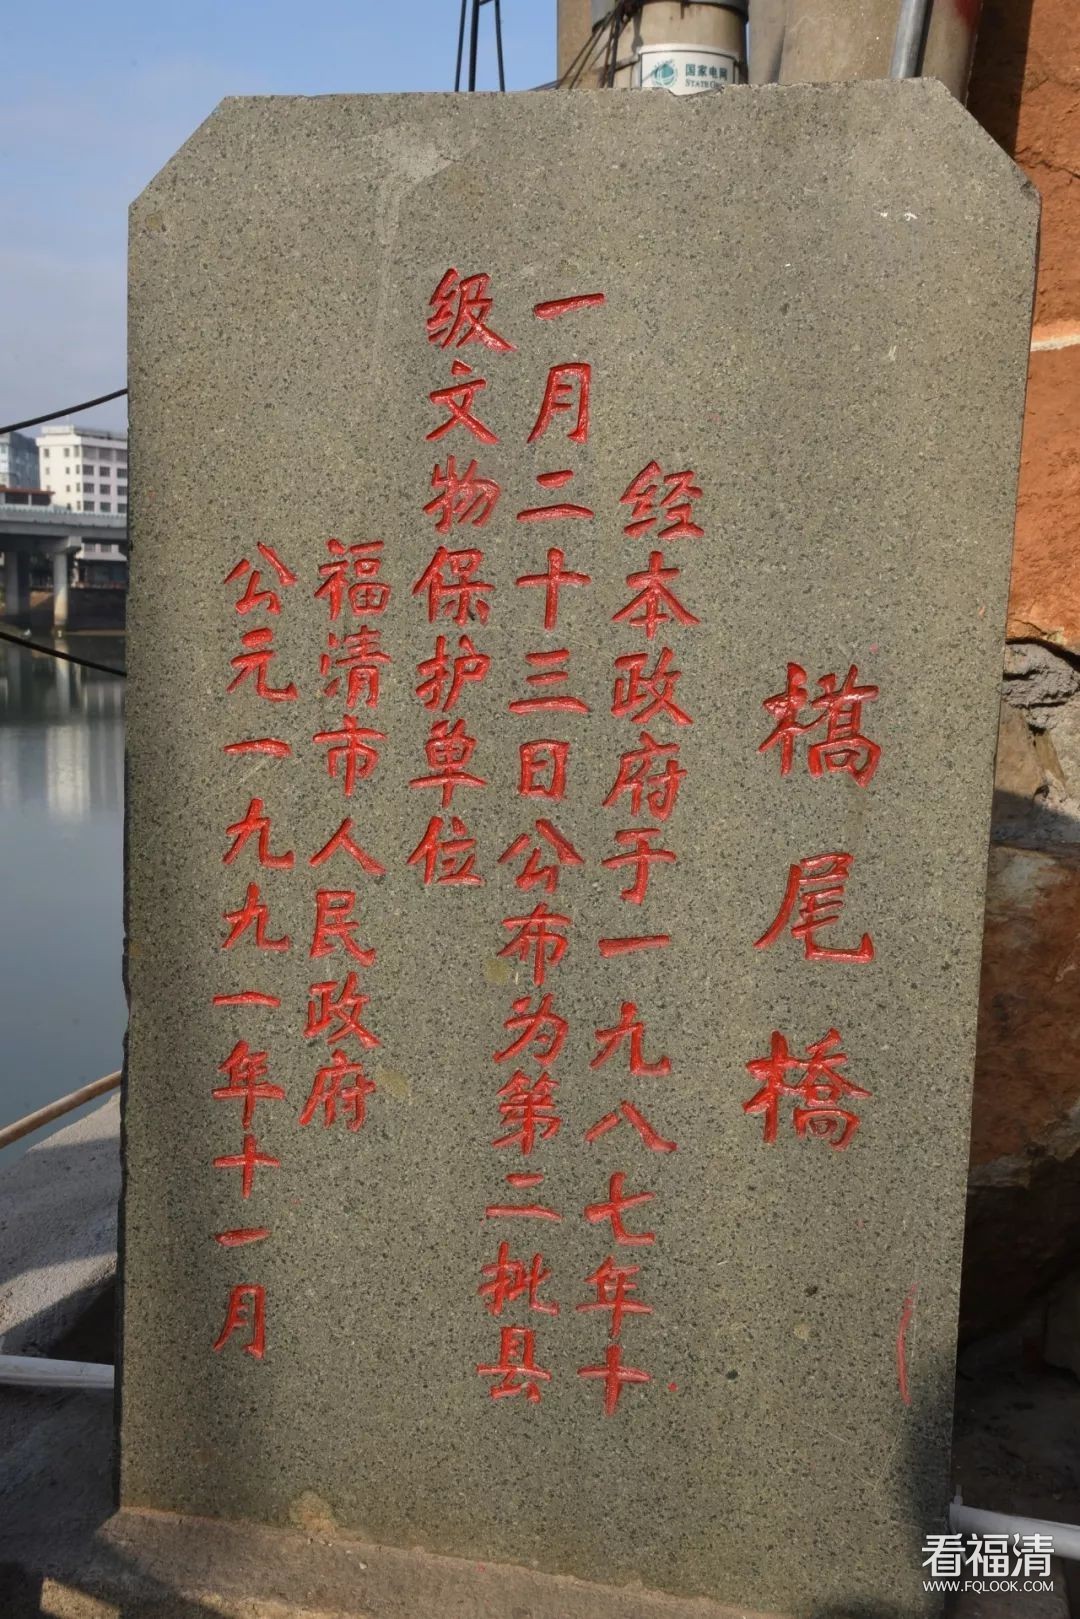 橋尾橋
经本政府于一九八七年十
一月二十三日公布为第二批县
级文物保护单位
福清市人民政府
公元一九九一年十一月
国家电网
看福清
WWW.FQLOOK.COM